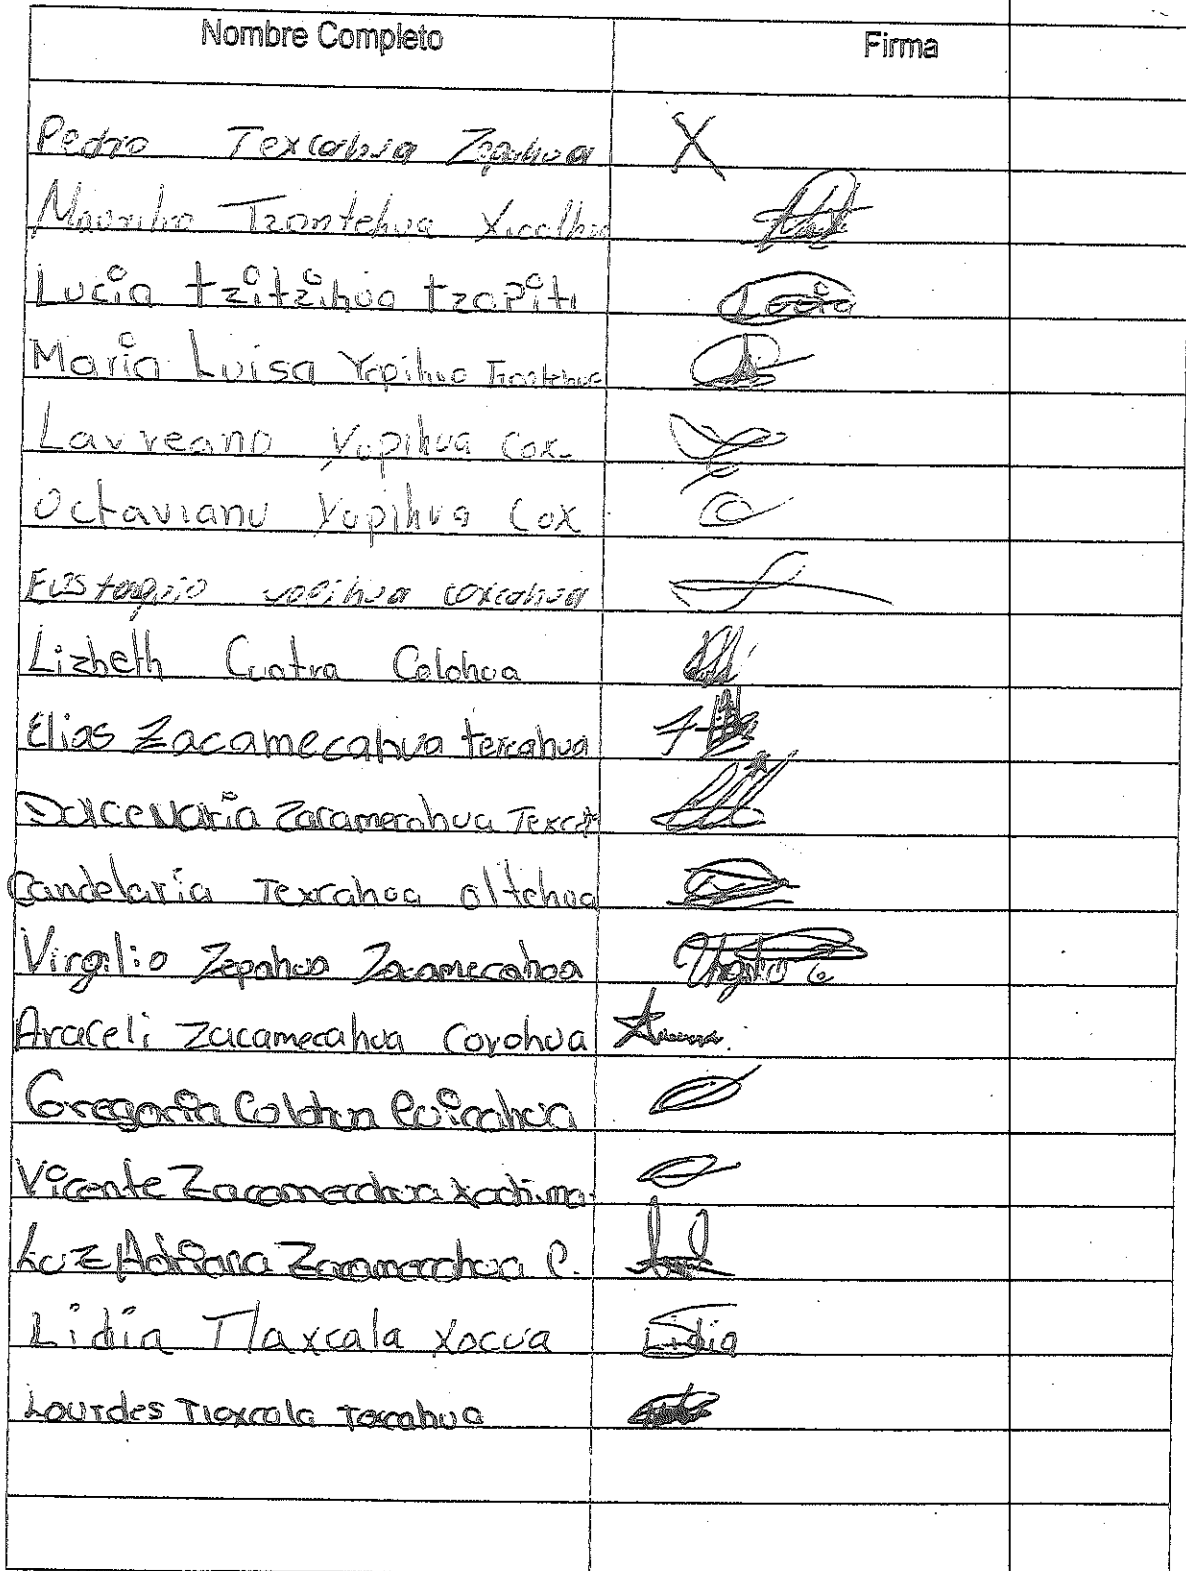 Nombre Completo Firma
Pedro Texcahua Zepahua X
Tzontehua
Lucia tzitzihua tzopiti Lucia
Maria Luisa Yopihua
Laureano Yopihua Cox.
Octaviano Yopihua Cox
Eustaquio yopihua coxcahua
Lizbeth Cuatra Colohua
Elias Zacamecahua texcahua
Dulce Maria Zacamecahua
Candelaria Texcahua
Virgilio Zepahua Zacamecahua Virgilio
Araceli Zacamecahua Coyohua
Gregoria Colohua
Vicente Zacamecahua
Luz Adriana Zacamecahua C.
Lidia Tlaxcala Xocua Lidia
Lourdes Tlaxcala